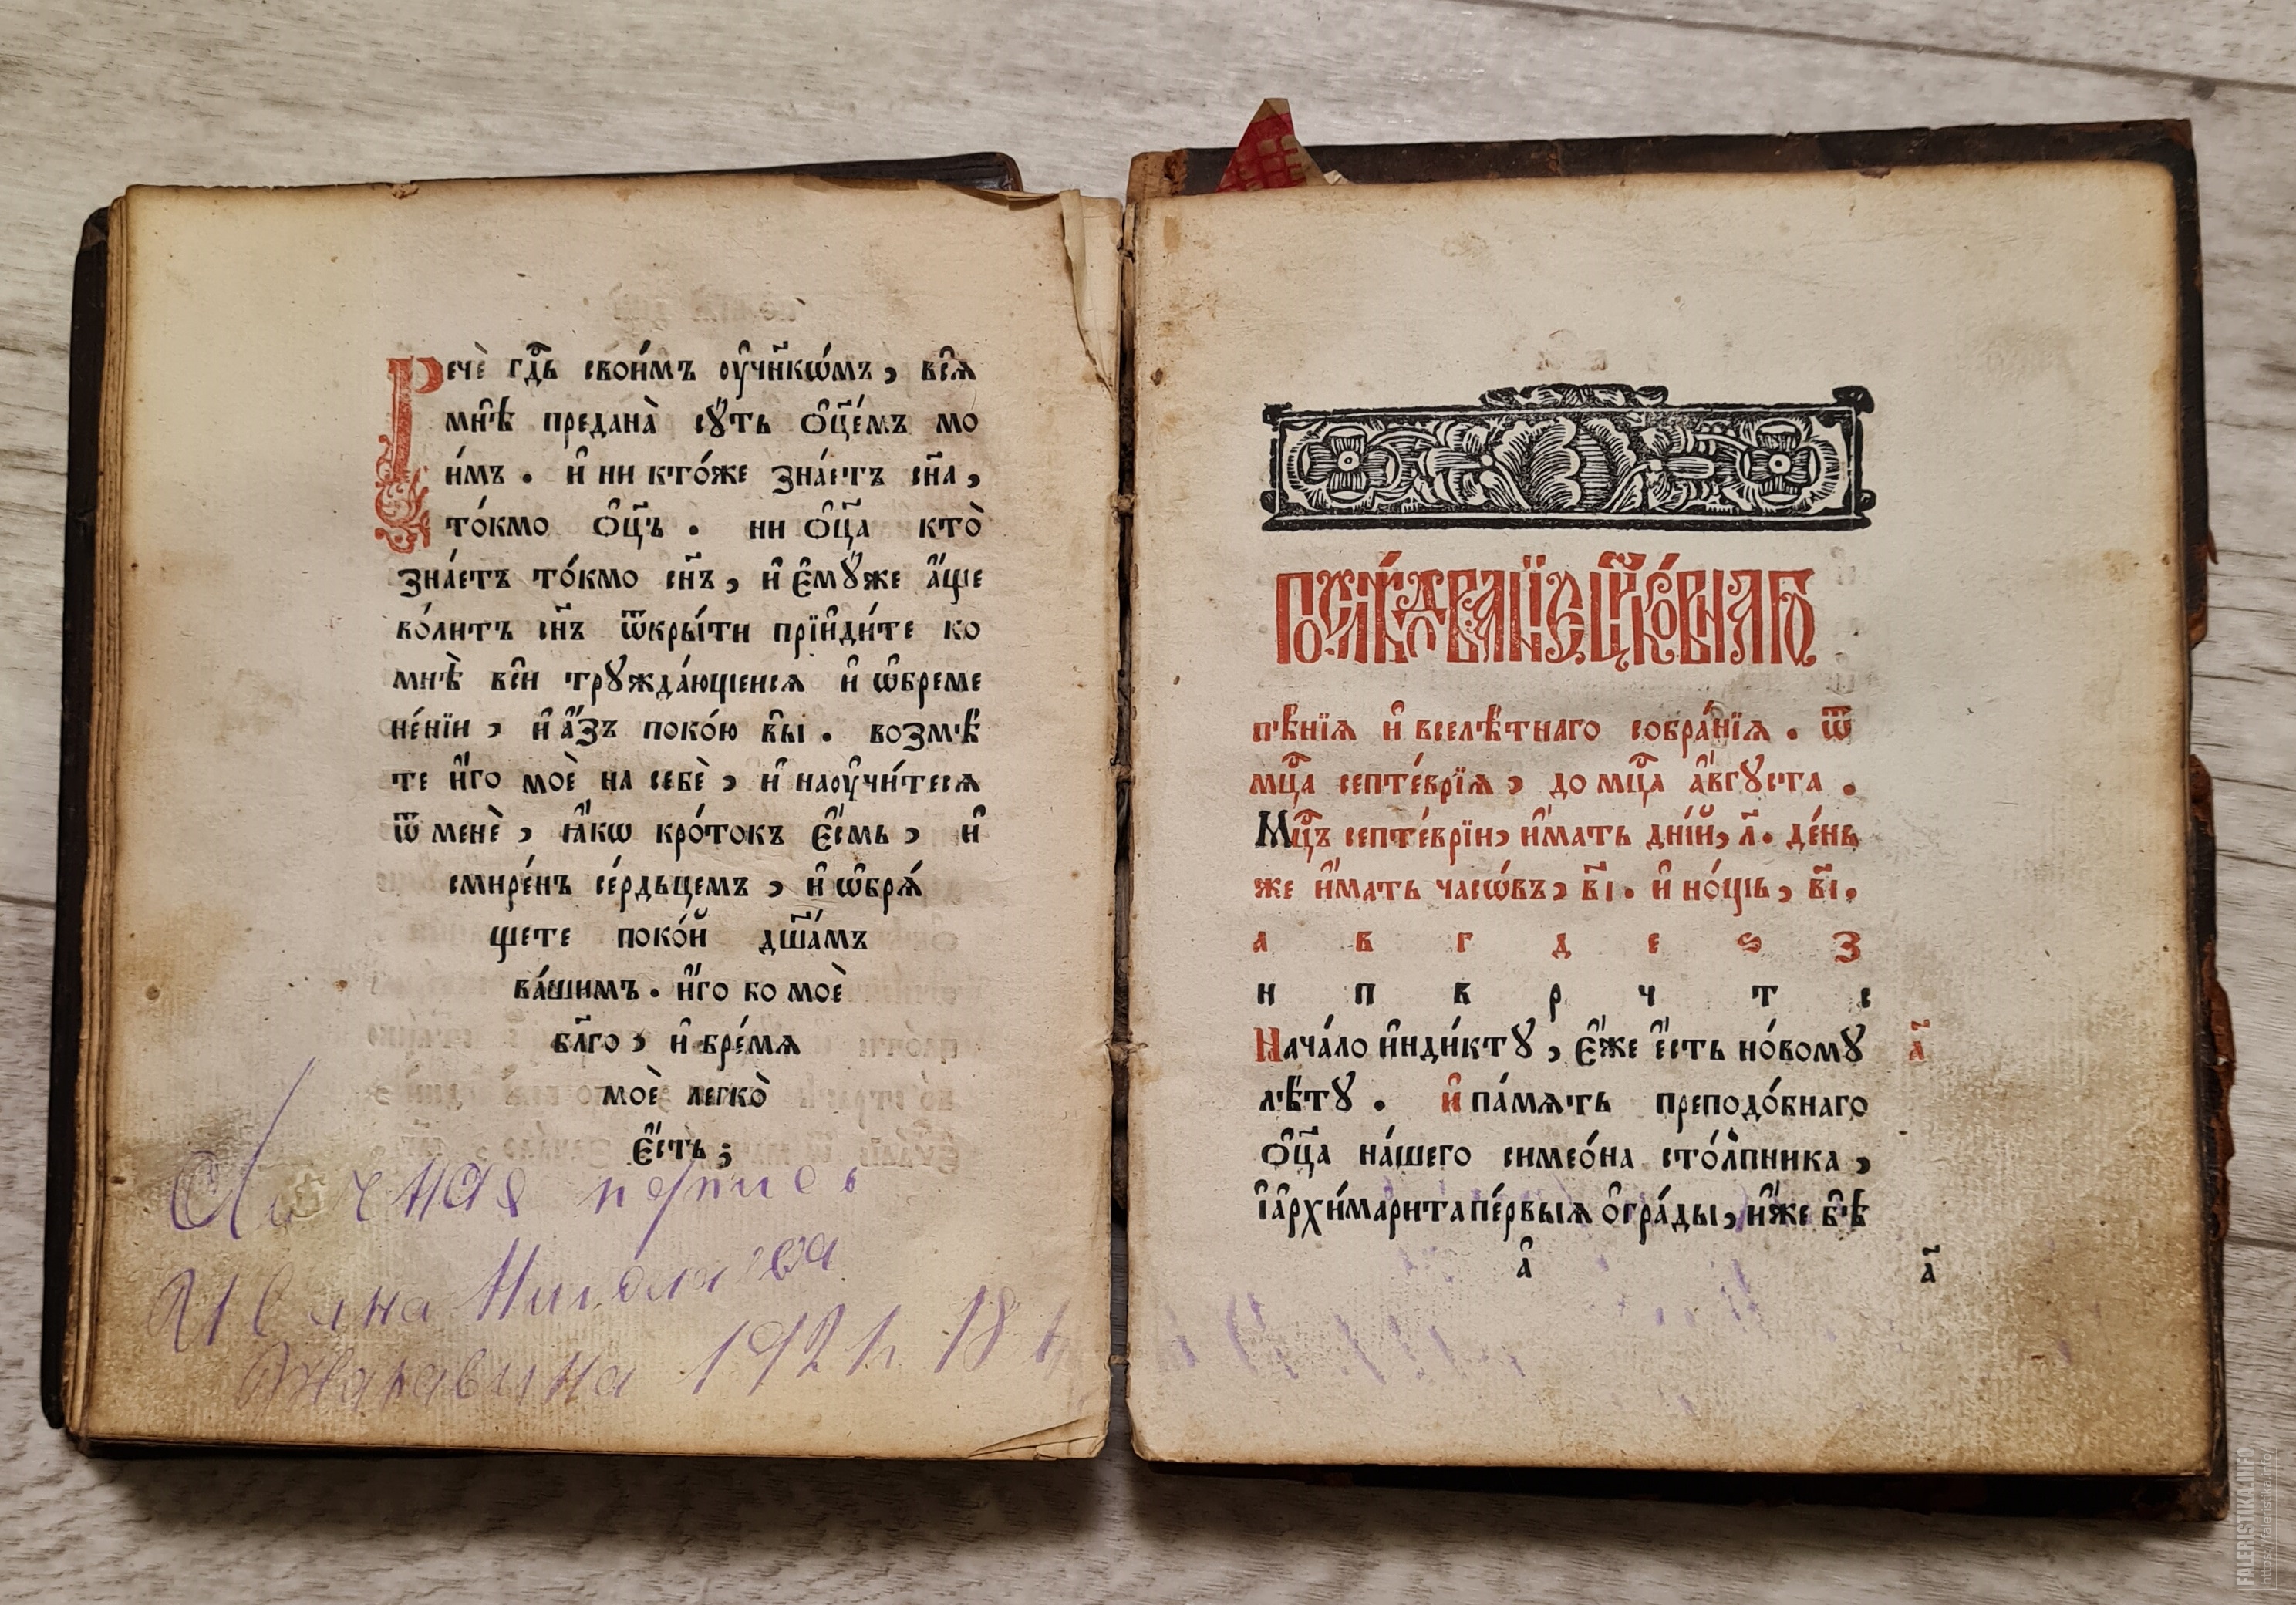 Речѐ гдⷭ҇ь свои́мъ ᲂу҆чн҃кѡ́мъ, всѧ̑
мнѣ̀ предана̀ сꙋ́ть ѻ҆ц҃е́мъ мо
и́мъ . и҆ ни кто́же зна́етъ сн҃а,
то́кмо ѻ҆ц҃ъ . ни ѻ҆ц҃а кто̀
зна́етъ то́кмо сн҃ъ, и҆ є҆мꙋ́же а҆́ще
во́литъ сн҃ъ ѿкры́ти прїиди́те ко
мнѣ̀ вси̑ трꙋжда́ющїисѧ и҆ ѡ҆бреме
не́нїи, и҆ а҆́зъ поко́ю вы̑ . возмѣ́
те и҆́го моѐ на себѐ, и҆ наᲂучи́тесѧ
ѿ менѐ, ꙗ҆́кѡ кро́токъ є҆́смь, и҆
смире́нъ се́рдьцемъ, и҆ ѡ҆брѧ́
щете поко́й дш҃а́мъ
ва́шимъ . и҆́го бо моѐ
бл҃го, и҆ бре́мѧ
моѐ легко̀
є҆́сть;
Личная
Ивана Николаева
1921 18
Послѣ́дованїе цр҃ко́внаго
пѣ́нїѧ и҆ вселѣ́тнаго собра́нїѧ . ѿ
мцⷭ҇а септе́врїѧ, до мцⷭ҇а а҆́вгꙋста .
Мцⷭ҇ъ септе́врїи, и҆́мать дні́й, л҃. де́нь
же и҆́мать часѡ́въ, в҃і . и҆ но́щь, в҃і,
а в г д е ѕ з
н п в р ч т с
Нача́ло и҆нди́ктꙋ, є҆́же є҆́сть но́вомꙋ
а҃
лѣ́тꙋ . и҆ па́мѧть преподо́бнаго
ѻ҆ц҃а на́шего симео́на сто́лпника,
і҆а҆рхимари́та пе́рвыѧ ѻ҆гра́ды, и҆́же бѣ̀
а҆
а҃
FALERISTIKA.INFO
https://faleristika.info